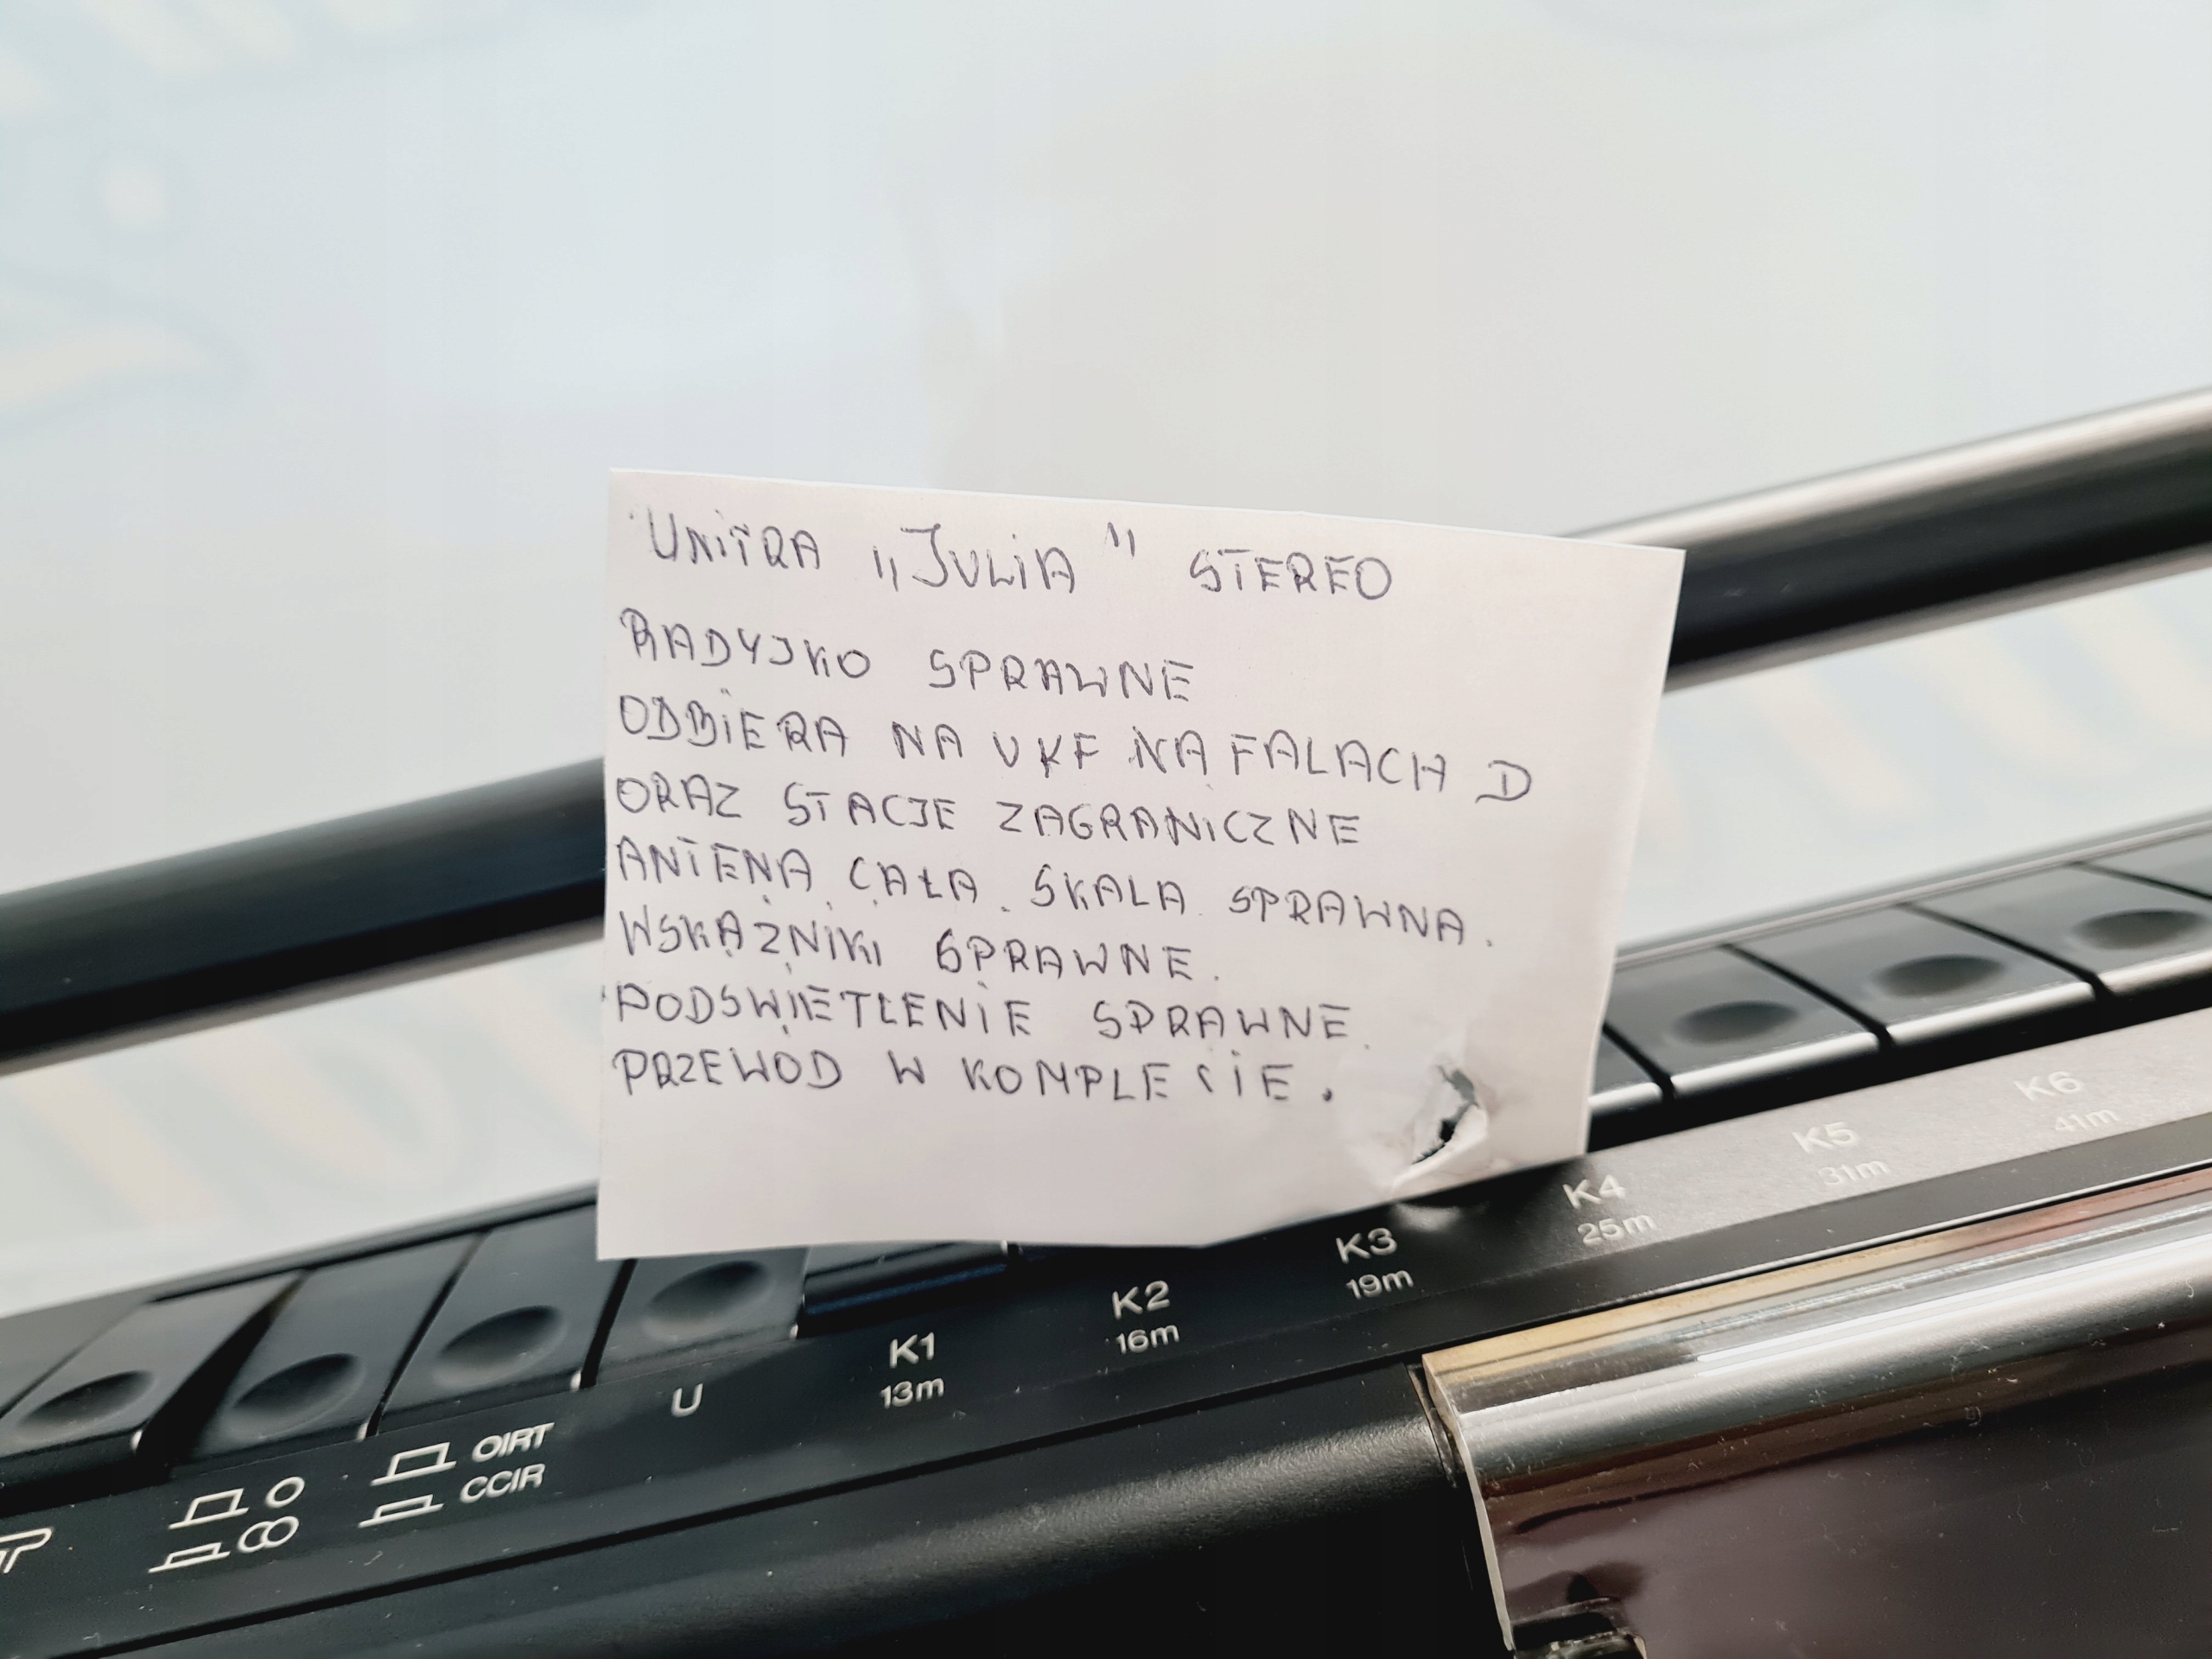 UNITRA „JULIA" STEREO
RADYJKO SPRAWNE
ODBIERA NA UKF NA FALACH D
ORAZ STACJE ZAGRANICZNE
ANTENA CAŁA. SKALA SPRAWNA.
WSKAŹNIKI SPRAWNE.
PODSWIETLENIE SPRAWNE.
PRZEWOD W KOMPLECIE.
OIRT
CCIR
U
K1
13m
K2
16m
K3
19m
K4
25m
K5
31m
K6
41m